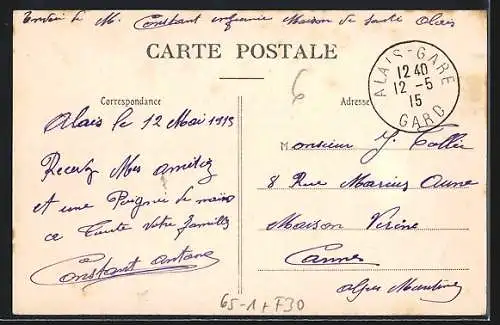 Envoi de M. Constant infirmier Maison de Santé Alais
CARTE POSTALE
6
ALAIS-GARE
12 40
12 -5
15
GARD
Correspondance
Adresse
Alais le 12 Mai 1915
Recevez Mes amitiés
et une Poignée de main
a Toute Votre famille
Constant Antone
Monsieur J.
8 Rue Marius Aune
Maison
Cannes
Alpes Maritime
65-1 + F30